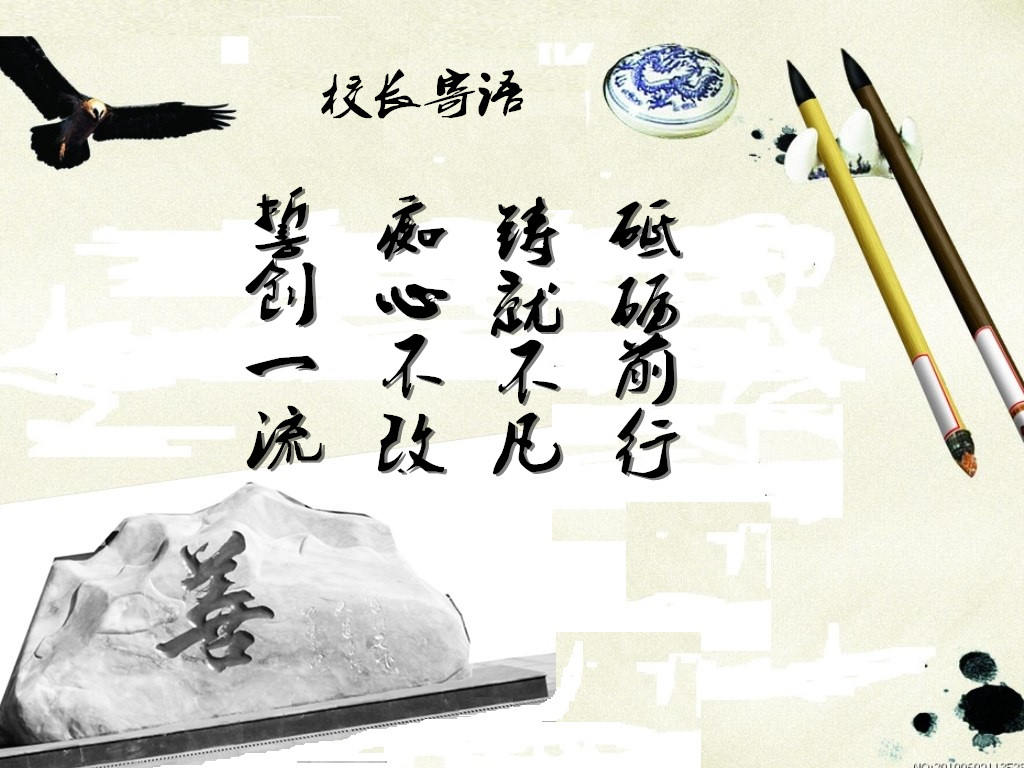 校长寄语
砥砺前行
铸就不凡
痴心不改
誓创一流
善